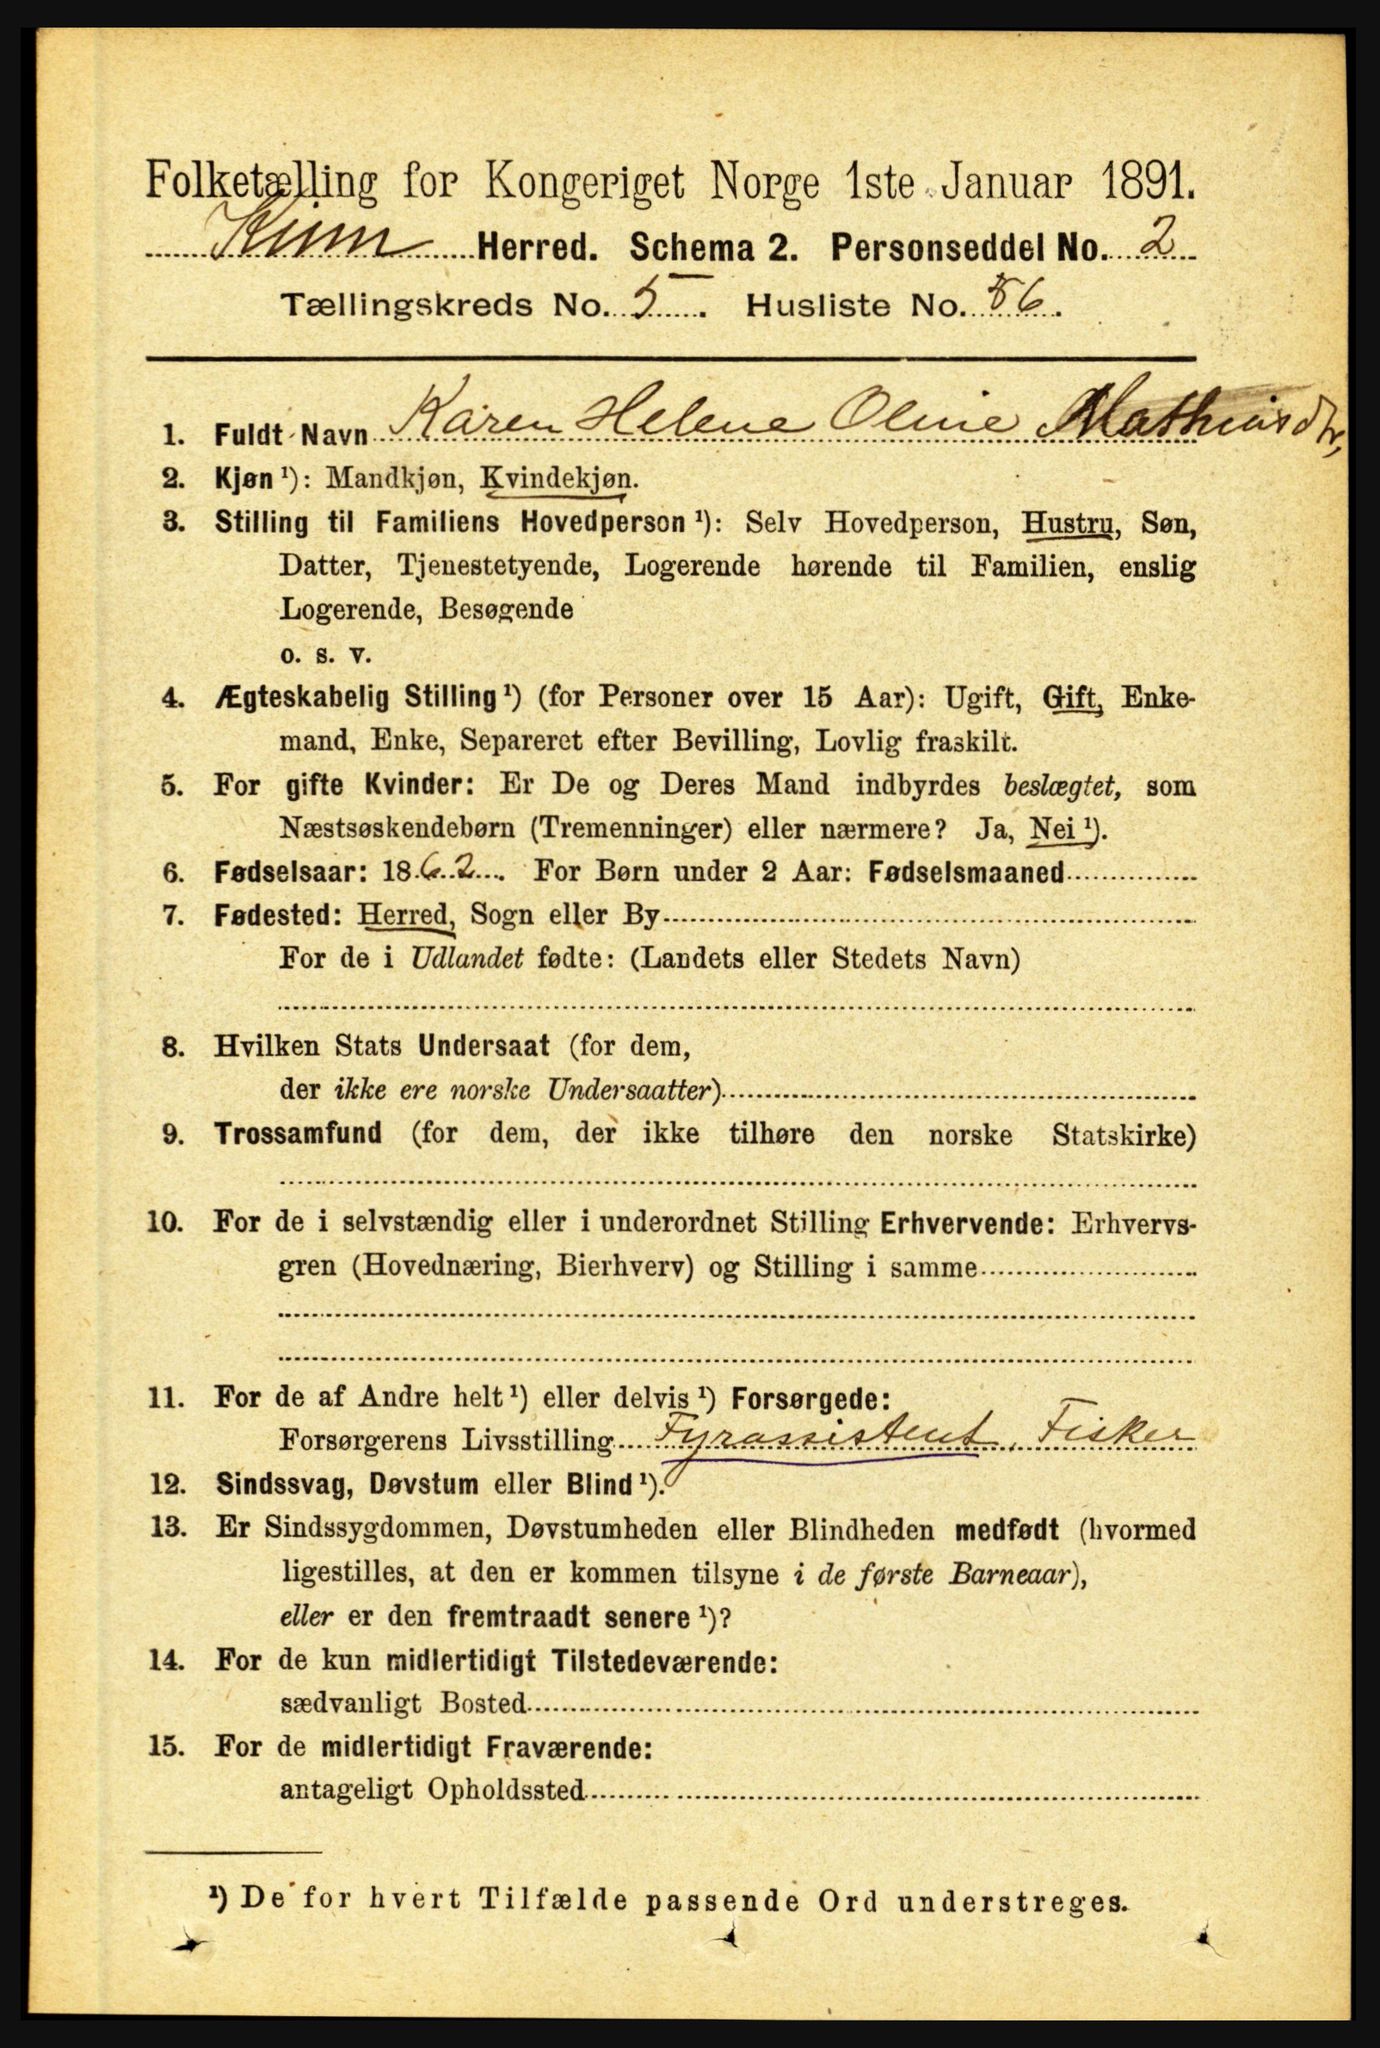 Folketælling for Kongeriget Norge 1ste Januar 1891.
Kinn Herred. Schema 2. Personseddel No. 2
Tællingskreds No. 5. Husliste No. 56.
1. Fuldt Navn Karen Helene Oline Mathiasdtr,
2. Kjøn ¹): Mandkjøn, Kvindekjøn.
3. Stilling til Familiens Hovedperson ¹): Selv Hovedperson, Hustru, Søn,
Datter, Tjenestetyende, Logerende hørende til Familien, enslig
Logerende, Besøgende
o. s. v.
4. Ægteskabelig Stilling ¹) (for Personer over 15 Aar): Ugift, Gift, Enke-
mand, Enke, Separeret efter Bevilling, Lovlig fraskilt.
5. For gifte Kvinder: Er De og Deres Mand indbyrdes beslægtet, som
Næstsøskendebørn (Tremenninger) eller nærmere? Ja, Nei ¹).
6. Fødselsaar: 1862. For Børn under 2 Aar: Fødselsmaaned
7. Fødested: Herred, Sogn eller By
For de i Udlandet fødte: (Landets eller Stedets Navn)
8. Hvilken Stats Undersaat (for dem,
der ikke ere norske Undersaatter)
9. Trossamfund (for dem, der ikke tilhøre den norske Statskirke)
10. For de i selvstændig eller i underordnet Stilling Erhvervende: Erhvervs-
gren (Hovednæring, Bierhverv) og Stilling i samme
11. For de af Andre helt ¹) eller delvis ¹) Forsørgede:
Forsørgerens Livsstilling Fyrassistent, Fisker
12. Sindssvag, Døvstum eller Blind ¹).
13. Er Sindssygdommen, Døvstumheden eller Blindheden medfødt (hvormed
ligestilles, at den er kommen tilsyne i de første Barneaar),
eller er den fremtraadt senere ¹)?
14. For de kun midlertidigt Tilstedeværende:
sædvanligt Bosted
15. For de midlertidigt Fraværende:
antageligt Opholdssted
¹) De for hvert Tilfælde passende Ord understreges.